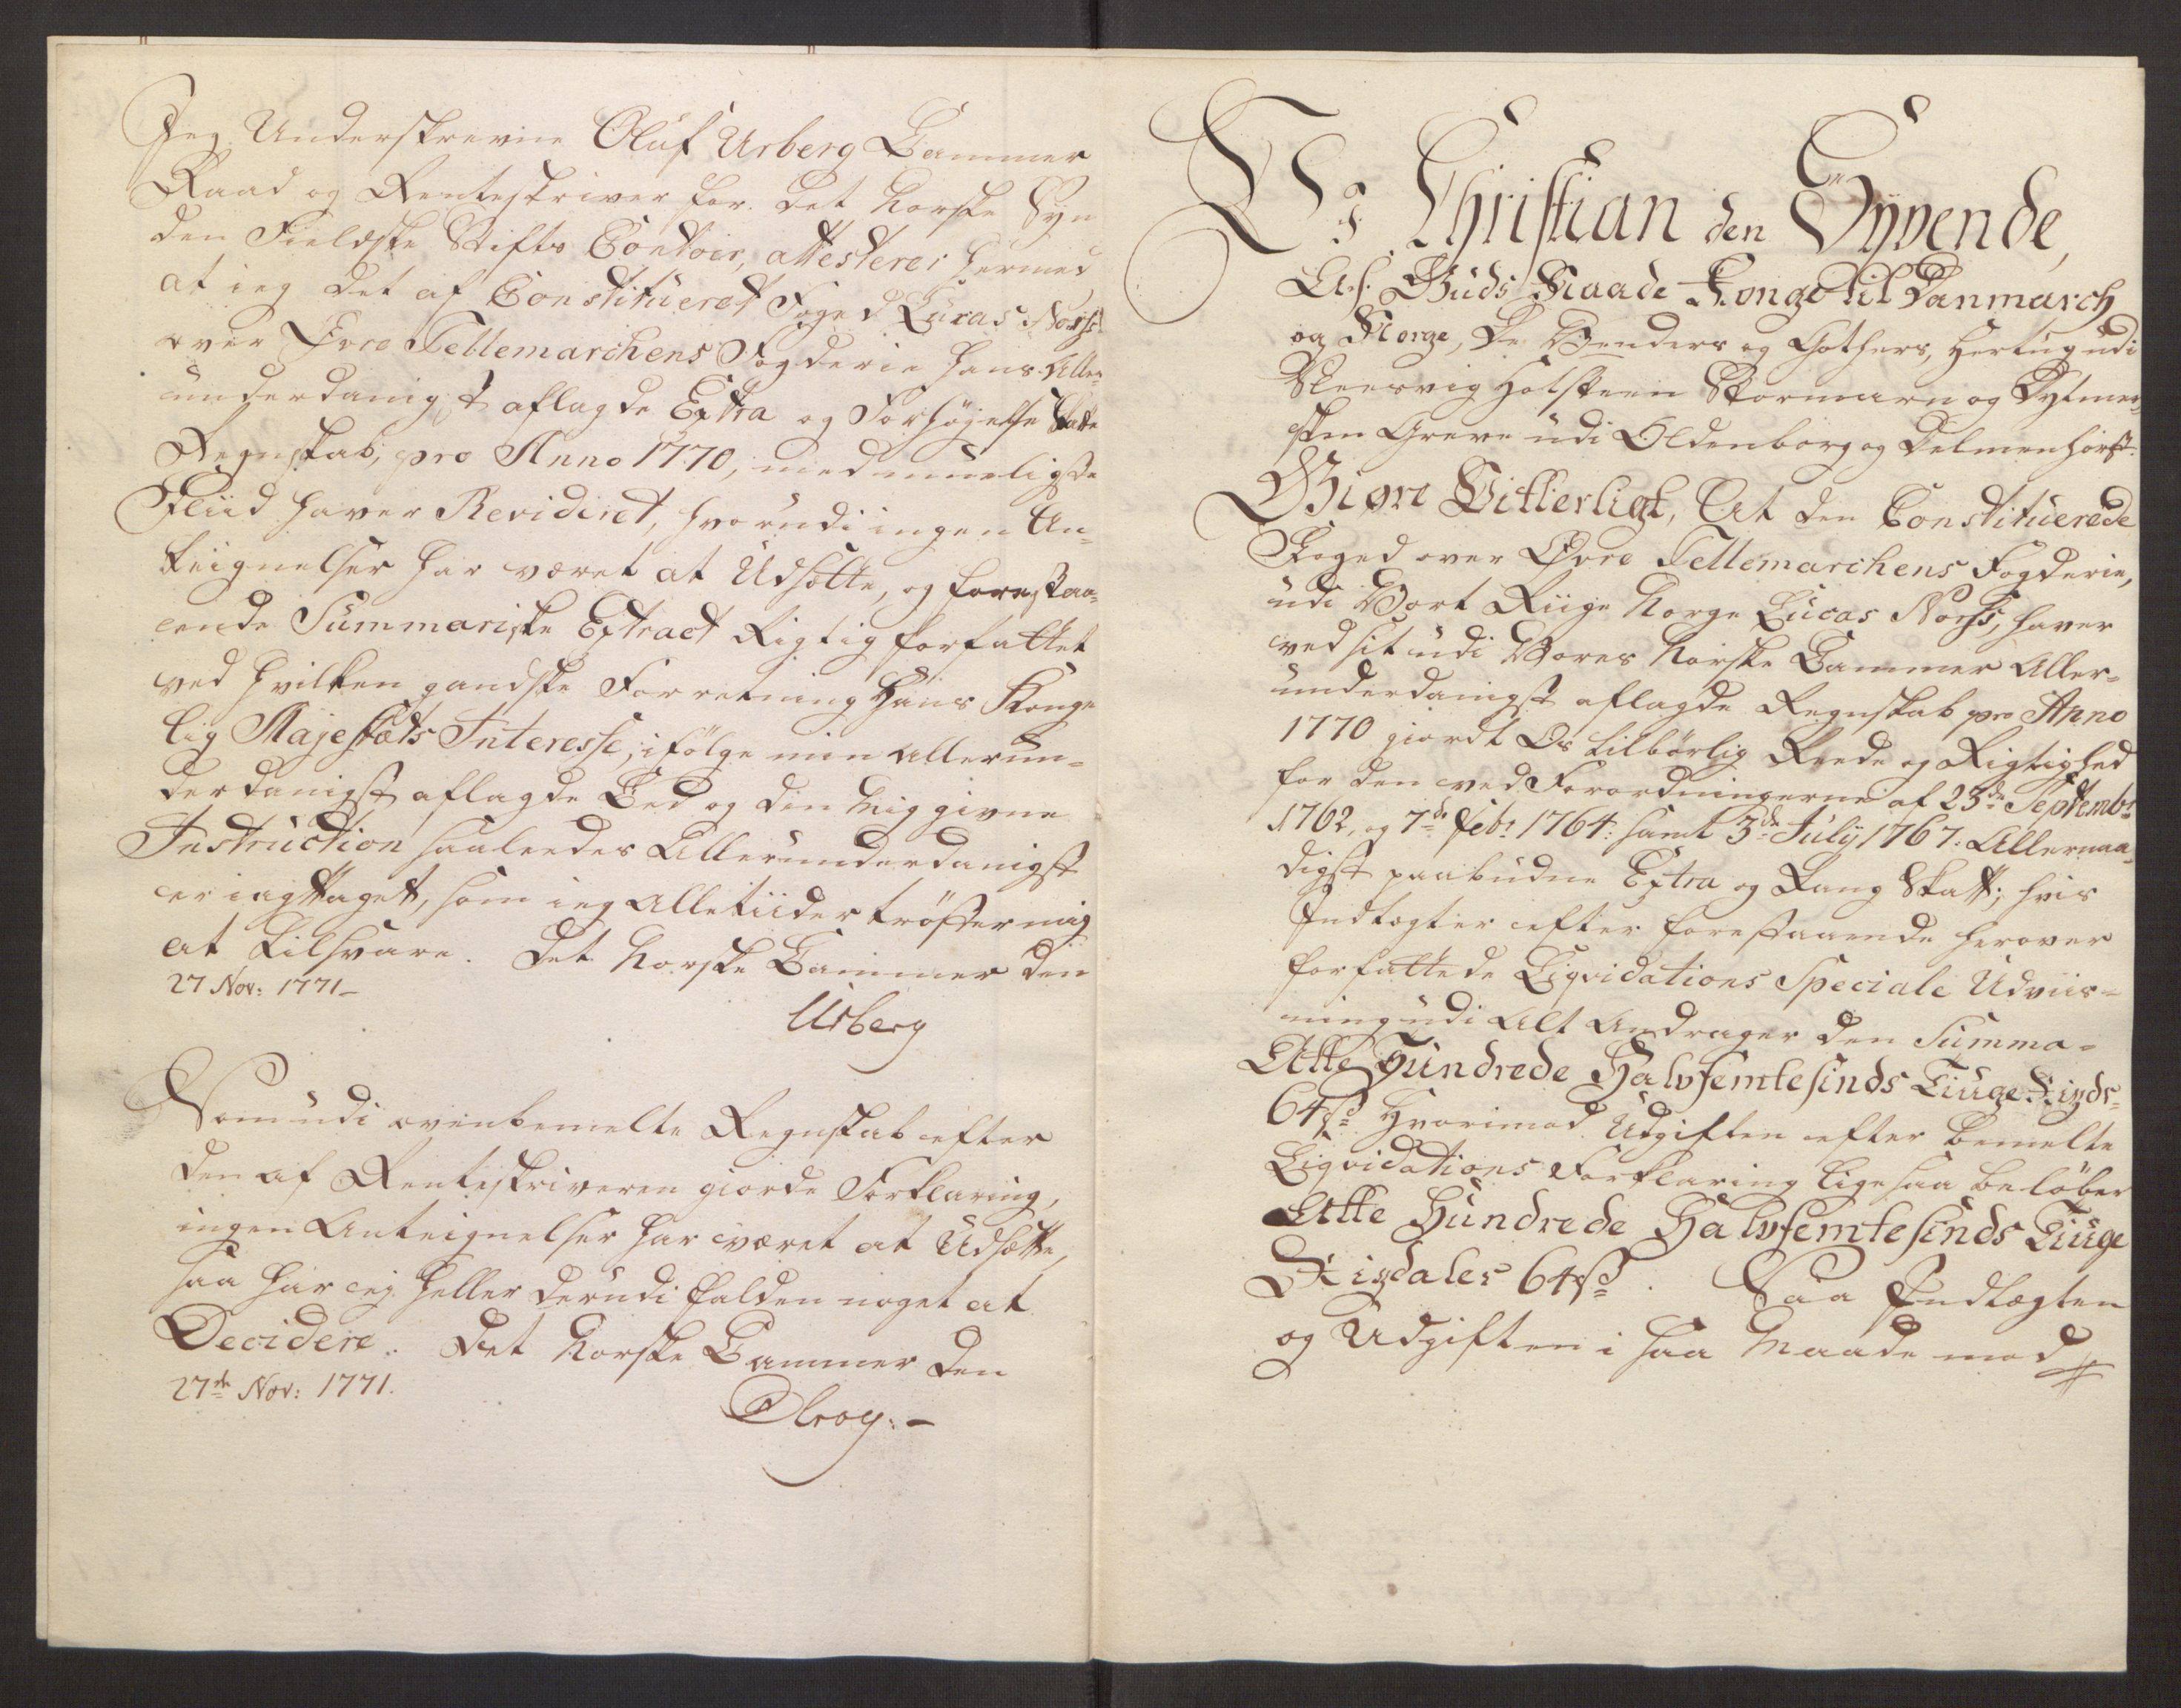 Jeg Underskrevne Oluf Urberg Cammer
Raad og Renteskriver for det Norske Syn
den Fieldske Stifts Contoir, attesterer hermed
at ieg det af Constitueret Foged Lucas Norss
over Øvre Tellemarchens Fogderie hans Aller¬
underdanigst aflagde Extra og Forhøjelse Skatte
Regnskab, pro Anno 1770, med mueligste
Fliid haver Revideret, hvorudi ingen An¬
teignelser har været at Udsætte, og forestaa¬
ende Summariske Extract Rigtig forfattet
ved hvilken gandske Forretning Hans Konge
lig Majestæts Interesse, ifølge min allerun¬
derdanigst aflagde Eed og den mig givne
Instruction saaledes Allerunderdanigst
er iagttaget, som ieg alletiider trøster mig
at tilsvare. Det Norske Cammer den
27 Nov: 1771_
Urberg
Som udi ovenbemelte Regnskab efter
den af Renteskriveren giorde Forklaring,
ingen Anteignelser har været at Udsætte,
saa har ej heller derudi falden noget at
Decidere. Det Norske Cammer den
27de Nov: 1771.
Vi Christian den Syvende,
Af Guds Naade Konge til Danmarch
og Norge, De Venders og Gothers, Hertug udi
Sleesvig Holsteen Stormarn og Dytmer¬
sken Greve udi Oldenborg og Delmenhorst.
Giøre Vitterligt, At den Constituerede
Foged over Øvre Tellemarchens Fogderie,
udi Vort Riige Norge Lucas Norss, haver
ved sit udi Vores Norske Cammer Aller¬
underdanigst aflagde Regnskab pro Anno
1770 giordt Os tilbørlig Reede og Rigtighed
for den ved Forordningerne af 23de Septembr
1762, og 7de Febr 1764: samt 3de July 1767. Allernaa¬
digst paabudne Extra og Rang Skatt; hvis
Indtægter efter forestaaende herover
forfattede Liqvidations Speciale Udviis¬
ning udi Alt Andrager den Summa¬
Atte Hundrede Halvfemtesinds Tiuge Rixdr
64 ß Hvorimod Udgiften efter bemelte
Liqvidations Forklaring ligesaa beløber
Atte Hundrede Halvfemtesinds Tiuge
Rixdaler 64 ß. Saa Indtægten
og Udgiften i saa Maade mod